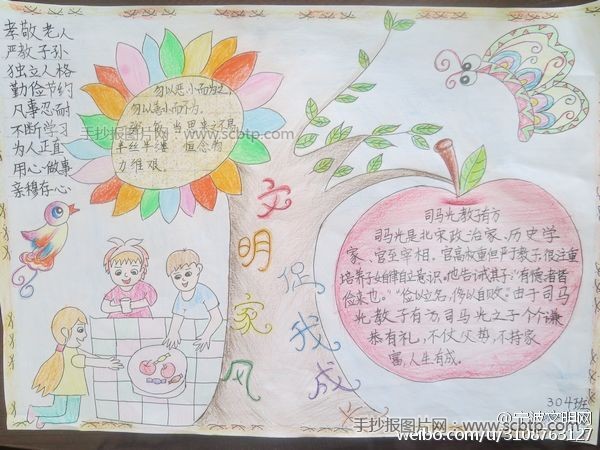 孝敬老人
严教子孙
独立人格
勤俭节约
凡事忍耐
不断学习
为人正直
用心做事
亲穆存心
勿以恶小而为之,
勿以善小而不为。
当思来之不易
半丝半缕 恒念物
力维艰。
手抄报图片网-www.scbtp.com
文明家风
促我成长
司马光教子有方
司马光是北宋政治家、历史学
家、官至宰相。官高权重但严于教子,很注重
培养子女自律自立意识。他告诫其子:“有德者皆
俭来也。”“俭以立名,侈以自败”由于司马
光教子有方司马光之子个个谦
恭有礼,不仗父势,不持家
富,人生有成。
304班
手抄报图片网-www.scbtp.com
@宁波文明网
weibo.com/u/3108763127